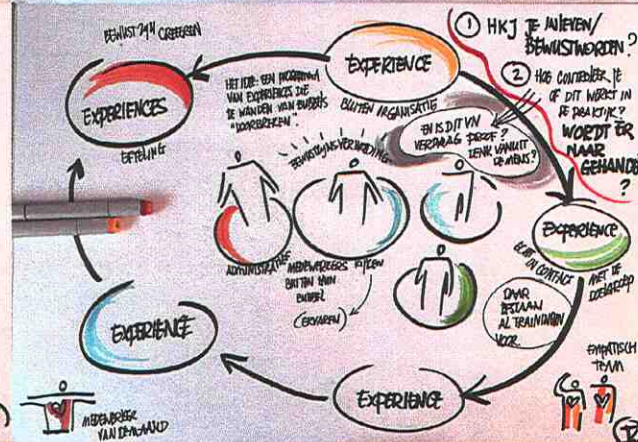 BEWUST ZIJN CREËEREN
EXPERIENCES
EFTELING
HET IDEE: EEN PROGRAMMA
VAN EXPERIENCES DIE
DE WANDEN VAN BUBBELS
"DOORBREKEN"
EXPERIENCE
BUITEN ORGANISATIE
1 HKJ JE INLEVEN/
BEWUSTWORDEN?
2 HOE CONTROLEER JE
OF DIT WERKT IN
DE PRAKTIJK?
WORDT ER
NAAR
GEHANDE
?
EN IS DIT VN
VERDRAG PROOF?
DENK VANUIT
DE MENS?
BEWUSTZIJNSVERWIJDING
ADMINISTRATIEF
MEDEWERKERS KIJKEN
BUITEN HUN
BUBBEL
(ERVAREN)
EXPERIENCE
ECHT IN CONTACT
MET DE
DOELGROEP
DAAR
BESTAAN
AL TRAININGEN
VOOR
EXPERIENCE
EXPERIENCE
MEDEWERKER
VAN DE MAAND
EMPATISCH
TEAM